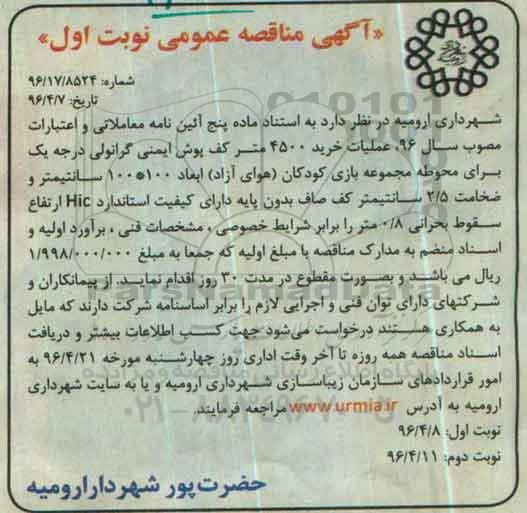 «آگهی مناقصه عمومی نوبت اول»
شماره: ۹۶/۱۷/۸۵۲۴
تاریخ: ۹۶/۴/۷
شهرداری ارومیه در نظر دارد به استناد ماده پنج آئین نامه معاملاتی و اعتبارات
مصوب سال ۹۶، عملیات خرید ۴۵۰۰ متر کف پوش ایمنی گرانولی درجه یک
برای محوطه مجموعه بازی کودکان (هوای آزاد) ابعاد ۱۰۰*۱۰۰ سانتیمتر و
ضخامت ۲/۵ سانتیمتر کف صاف بدون پایه دارای کیفیت استاندارد Hic ارتفاع
سقوط بحرانی ۰/۸ متر را برابر شرایط خصوصی، مشخصات فنی، برآورد اولیه و
اسناد منضم به مدارک مناقصه با مبلغ اولیه که جمعا به مبلغ ۱/۹۹۸/۰۰۰/۰۰۰
ریال می باشد و بصورت مقطوع در مدت ۳۰ روز اقدام نماید. از پیمانکاران و
شرکتهای دارای توان فنی و اجرایی لازم را برابر اساسنامه شرکت دارند که مایل
به همکاری هستند درخواست می‌شود جهت کسب اطلاعات بیشتر و دریافت
اسناد مناقصه همه روزه تا آخر وقت اداری روز چهارشنبه مورخه ۹۶/۴/۲۱ به
امور قراردادهای سازمان زیباسازی شهرداری ارومیه و یا به سایت شهرداری
ارومیه به آدرس www.urmia.ir مراجعه فرمایند.
نوبت اول: ۹۶/۴/۸
نوبت دوم: ۹۶/۴/۱۱
حضرت‌پور شهردار ارومیه